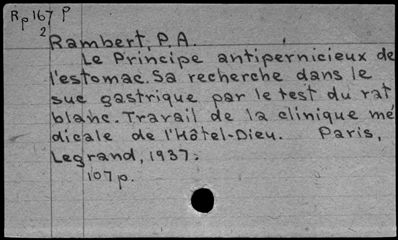 Rp167 P
2
Rambert, P.A.
Le Principe antipernicieux de
l'estomac. Sa recherche dans le
suc gastrique par le test du rat
blanc. Travail de la clinique mé
dicale de l'Hôtel-Dieu. Paris,
Legrand, 1937.
107p.